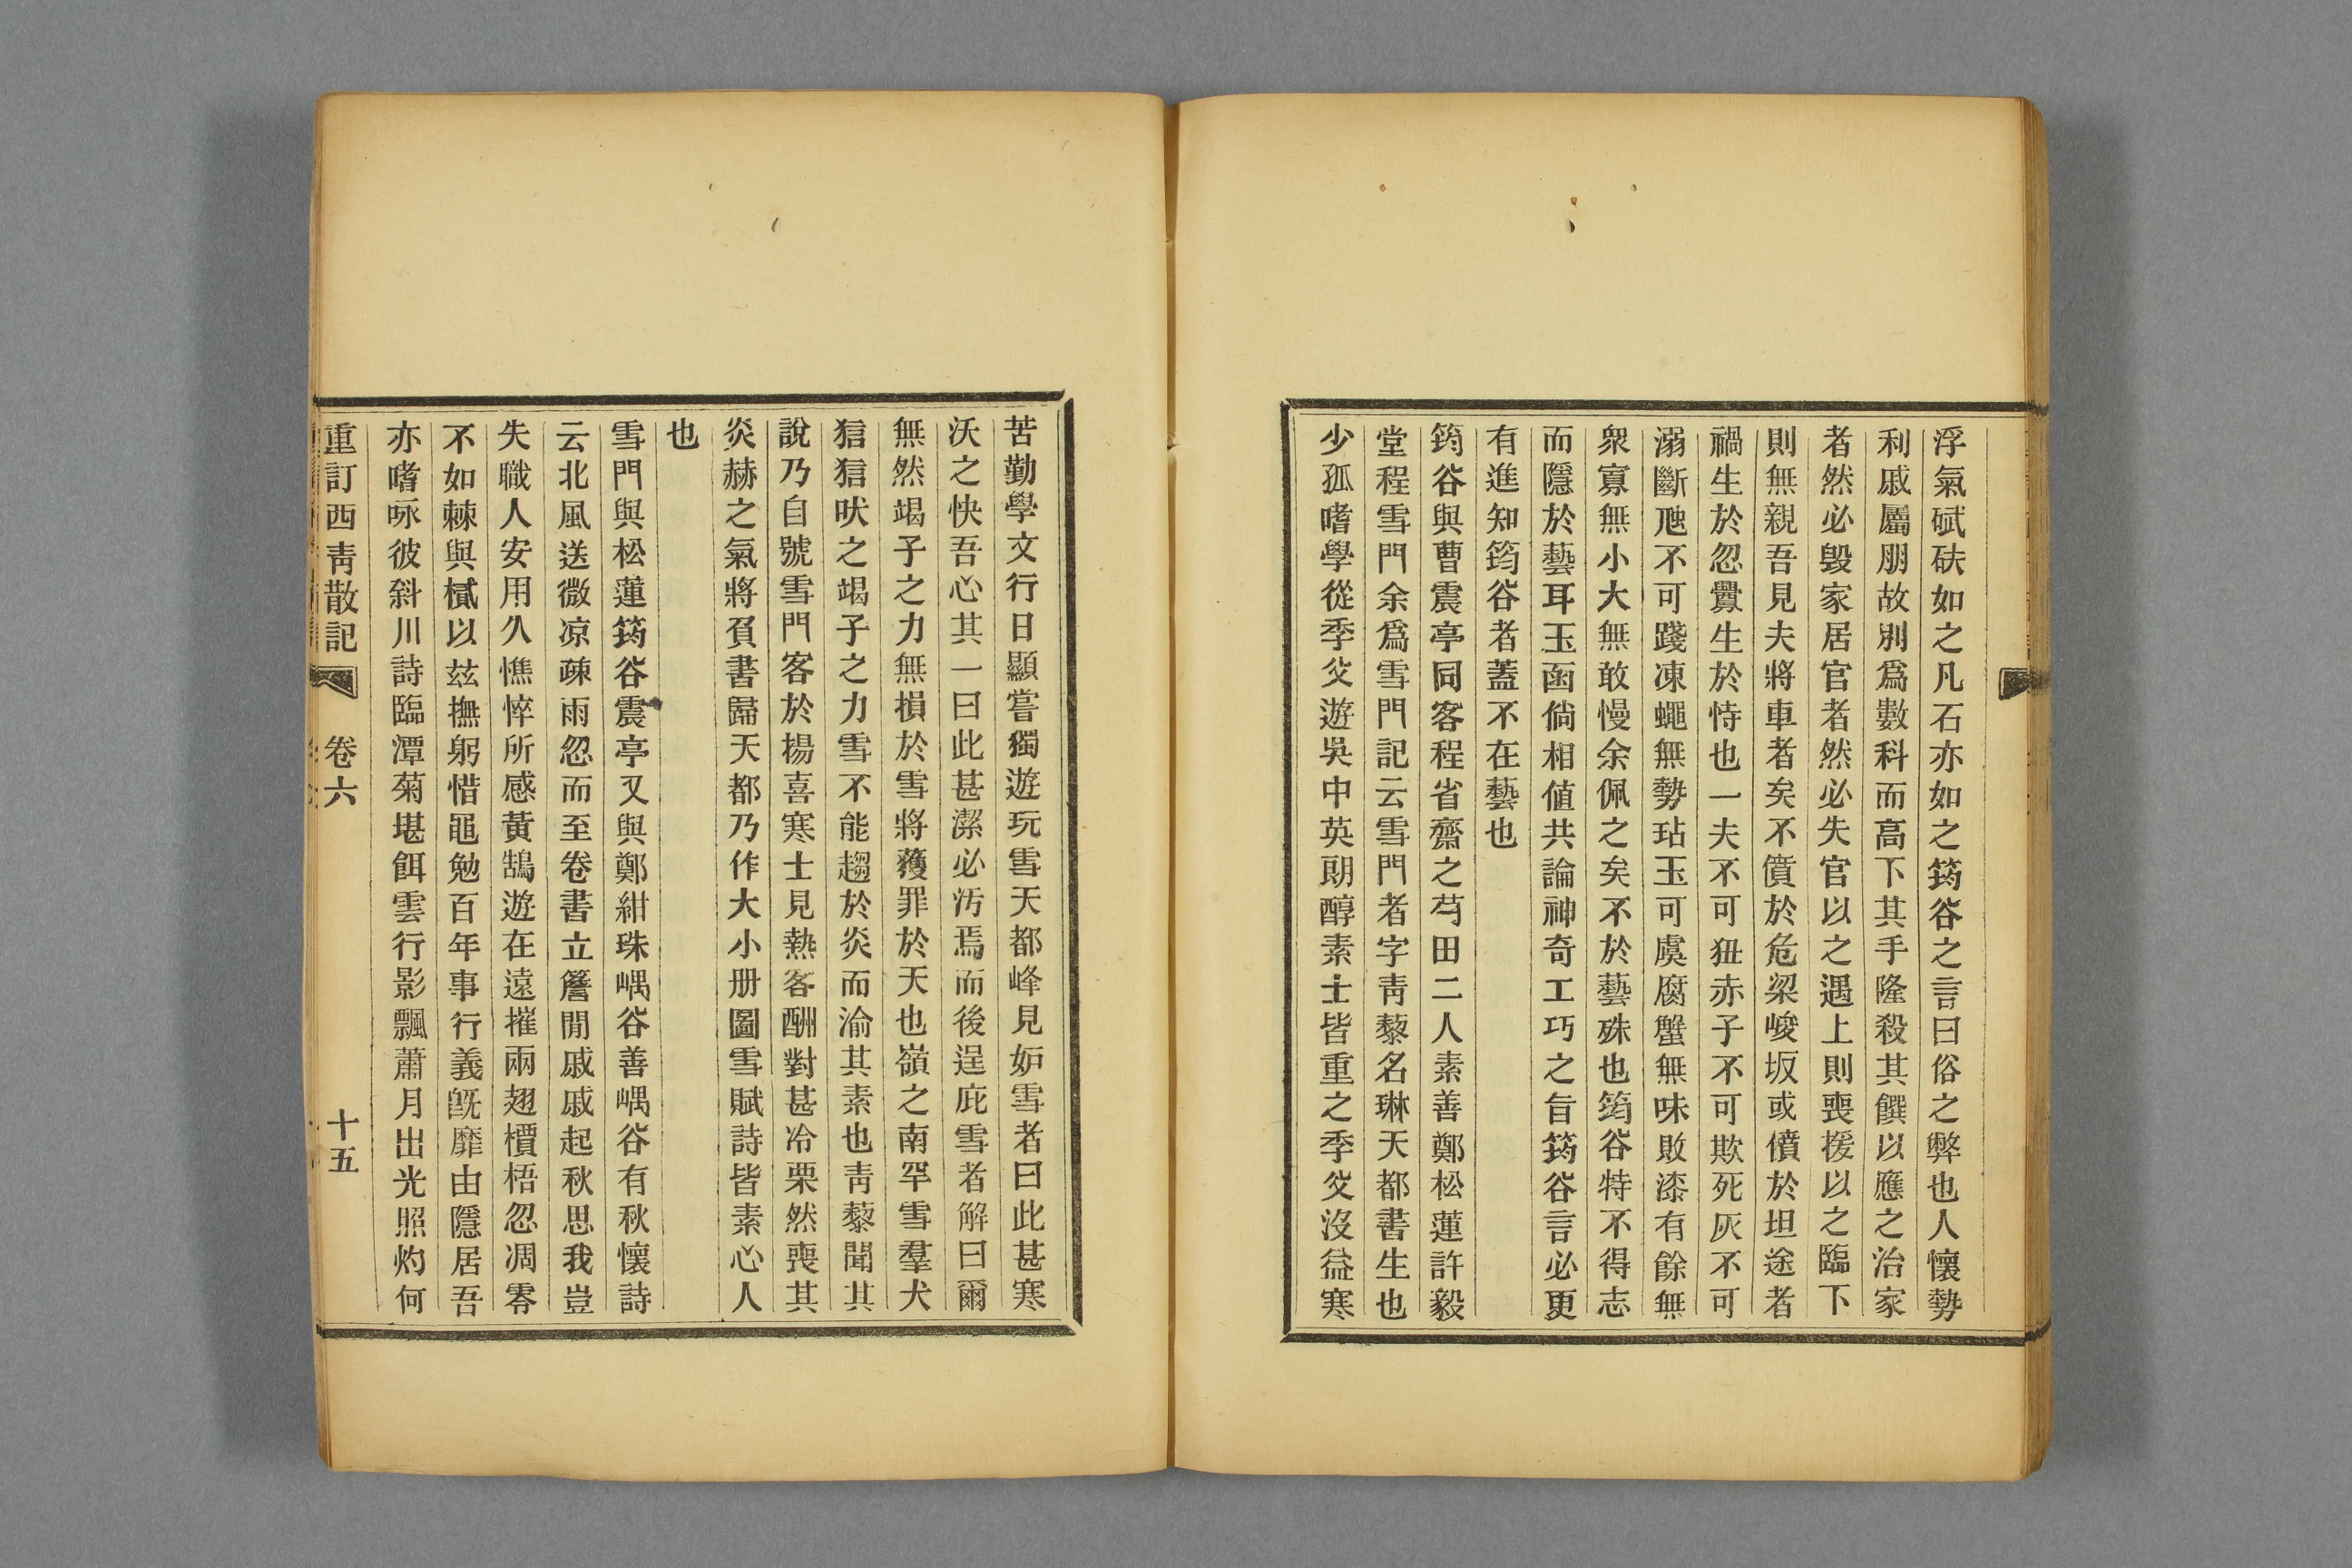 浮氣碔砆如之凡石亦如之筠谷之言曰俗之弊也人懷勢
利戚屬朋故別爲數科而高下其手隆殺其饌以應之治家
者然必毀家居官者然必失官以之遇上則喪援以之臨下
則無親吾見夫將車者矣不僨於危梁峻坂或僨於坦途者
禍生於忽釁生於恃也一夫不可狃赤子不可欺死灰不可
溺斷虺不可踐凍蠅無勢玷玉可虞腐蟹無味敗漆有餘無
衆寡無小大無敢慢余佩之矣不於藝殊也筠谷特不得志
而隱於藝耳玉函倘相値共論神奇工巧之旨筠谷言必更
有進知筠谷者蓋不在藝也
筠谷與曹震亭同客程省齋之芍田二人素善鄭松蓮許毅
堂程雪門余爲雪門記云雪門者字靑藜名琳天都書生也
少孤嗜學從季父遊吳中英朗醇素士皆重之季父沒益寒
苦勤學文行日顯嘗獨遊玩雪天都峰見妒雪者曰此甚寒
沃之快吾心其一曰此甚潔必汚焉而後逞庇雪者解曰爾
無然竭子之力無損於雪將獲罪於天也嶺之南罕雪羣犬
狺狺吠之竭子之力雪不能趨於炎而渝其素也靑藜聞其
說乃自號雪門客於楊喜寒士見熱客酬對甚冷栗然喪其
炎赫之氣將負書歸天都乃作大小册圖雪賦詩皆素心人
也
雪門與松蓮筠谷震亭又與鄭紺珠嵎谷善嵎谷有秋懷詩
云北風送微凉疎雨忽而至卷書立簷閒戚戚起秋思我豈
失職人安用久憔悴所感黃鵠遊在遠摧兩翅檟梧忽凋零
不如棘與樲以玆撫躬惜黽勉百年事行義旣靡由隱居吾
亦嗜咏彼斜川詩臨潭菊堪餌雲行影飄蕭月出光照灼何
重訂西靑散記 卷六 十五